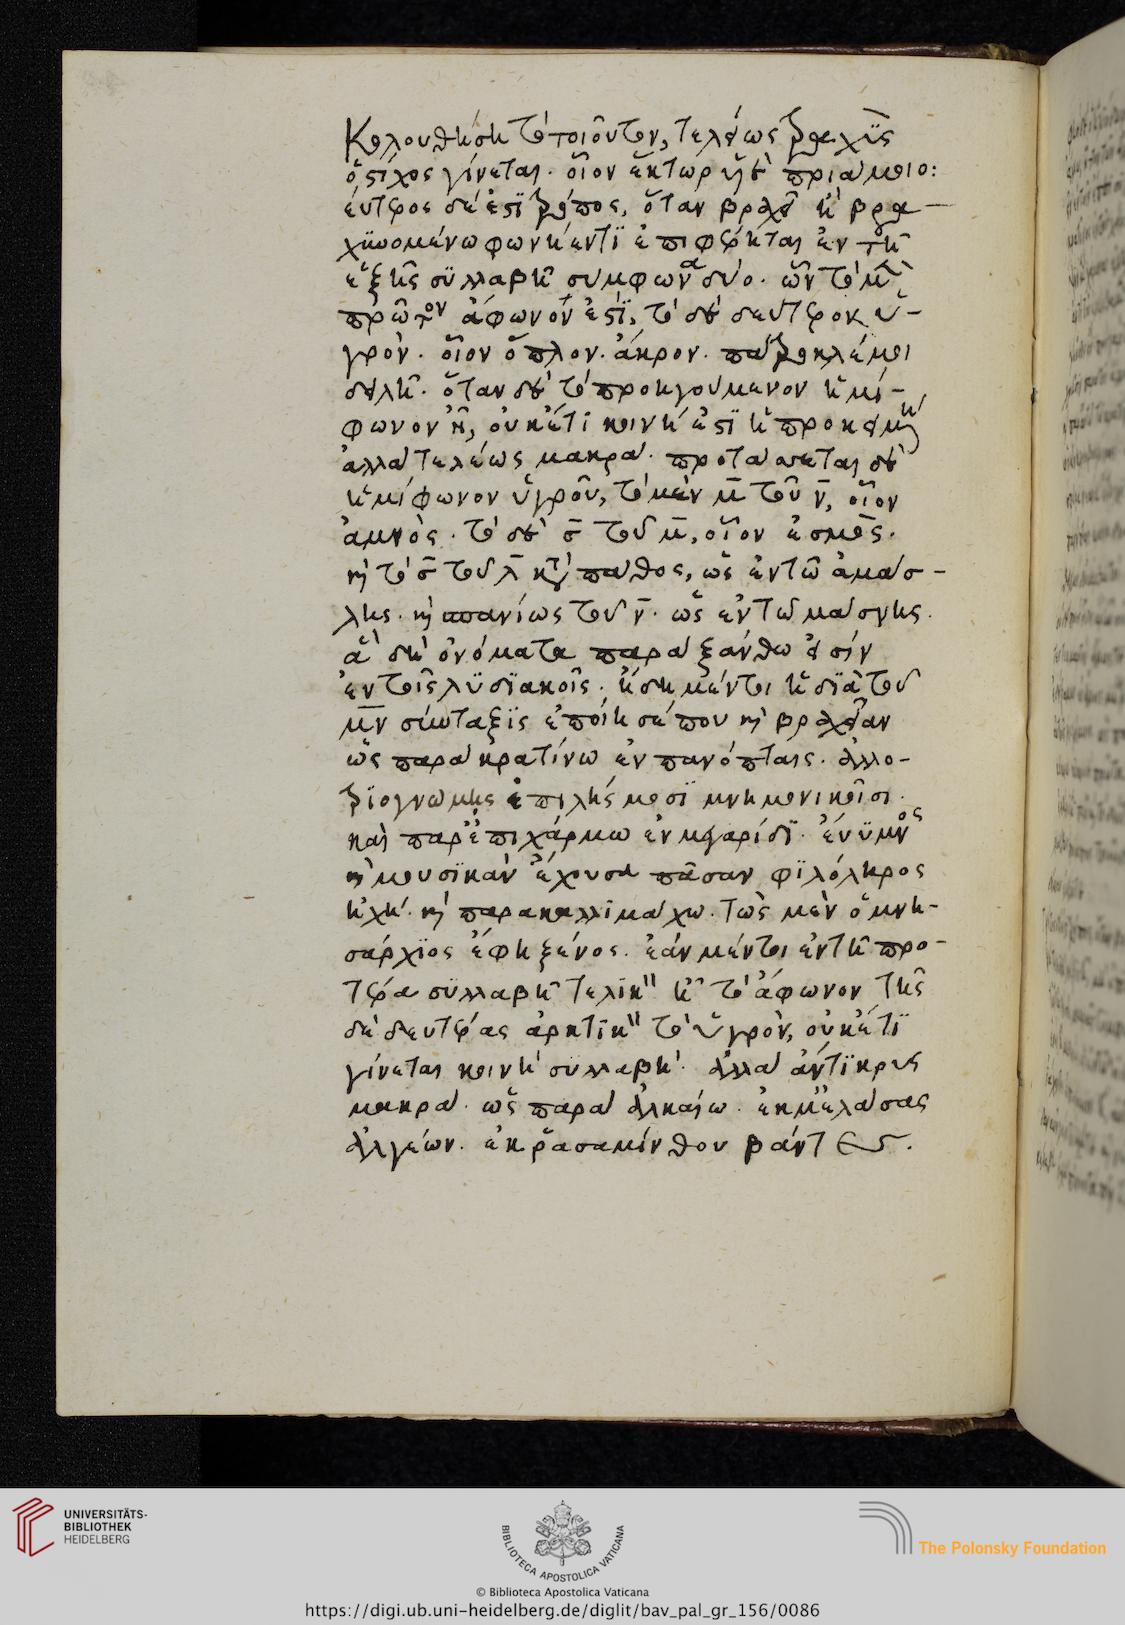 κολουθήση τὸ ποιοῦντον, τελείως βραχὺς
ὁ στίχος γίνεται. οἷον ἕκτωρ
εύτερος δέ ἐστι τρόπος, ὅταν βραχεῖ ἢ βρα-
χυνομένω φωνήεντι ἐπιφέρηται ἐν τῆ
ἑξῆς συλλαβῆ σύμφωνα δύο. ὧν τὸ μὲν
πρῶτον ἄφωνόν ἐστι, τὸ δὲ δεύτερον ὑ-
γρόν. οἷον ὅπλον. ἄκρον.
ὅταν δὲ τὸ προηγούμενον ἡμί-
φωνον ἦ, οὐκέτι κοινή ἐστι ἡ προκειμένη
ἀλλὰ τελέως μακρά. προτάσσεται δὲ
ἡμίφωνον ὑγροῦ, τὸ μὲν μ̄ τοῦ ν̄, οἷον
ἀμνὸς. τὸ δὲ σ̄ τοῦ μ̄, οἷον ἐσμός.
καὶ τὸ σ̄ τοῦ λ̄ κατὰ πάθος, ὡς ἐν τῶ ἀμάσ-
λης. καὶ σπανίως τοῦ ν̄. ὡς ἐν τῶ μάσνης.
ἃ δὴ ὀνόματα παρὰ ξάνθω εἰσίν
ἐν τοῖς λυδιακοῖς. ἤδη μέντοι ἡ διὰ τοῦ
μ̄ν̄ σύνταξις ἐποίησέ που καὶ βραχεῖαν
ὡς παρὰ κρατίνω ἐν πανόπταις. ἀλλο-
τριογνώμοις ἐπιλήσμοσι μνημονικοῖσι.
καὶ παρ' ἐπιχάρμω ἐν μεγαρίδι. εὔυμνος
καὶ μουσικὰν ἔχουσα πᾶσαν φιλόληρος
ἠχή. καὶ παρα καλλιμάχω. τὼς μὲν ὁ μνη-
σάρχιος ἔφη ξένος. ἐάν μέντοι ἐν τῆ προ-
τέρα συλλαβῆ τελικὸν ἦ τὸ ἄφωνον τῆς
δὲ δευτέρας ἀρκτικὸν τὸ ὑγρόν, οὐκέτι
γίνεται κοινή συλλαβή. ἀλλὰ ἄντικρυς
μακρά. ὡς παρὰ ἀλκαίω. ἐκ μ' ἐλάσας
ἀλγέων. ἐκ ῥ' ἀσαμίνθου βάντες.
UNIVERSITÄTS-
BIBLIOTHEK
HEIDELBERG
BIBLIOTHECA APOSTOLICA VATICANA
The Polonsky Foundation
© Biblioteca Apostolica Vaticana
https://digi.ub.uni-heidelberg.de/diglit/bav_pal_gr_156/0086